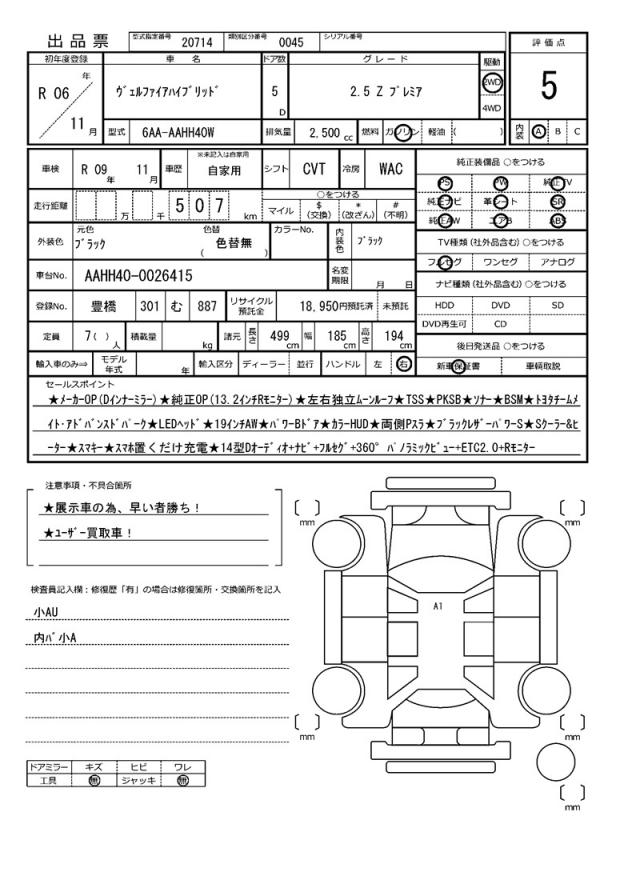 出品票
型式指定番号 20714 類別区分番号 0045 シリアル番号
評価点
初年度登録 車名 ドア数 グレード 駆動
R 06 年 11 月
ヴェルファイアハイブリッド
5 D
2.5 Z プレミア
2WD
4WD
5
型式 6AA-AAHH40W 排気量 2,500 cc 燃料 ガソリン 軽油 ( )
内装 A B C
車検 R 09 年 11 月 車歴 ※未記入は自家用 自家用 シフト CVT 冷房 WAC
純正装備品 ○をつける
PS PW 純正TV
純正ナビ 革シート SR
純正AW エアB ABS
走行距離 万 千 5 0 7 km
○をつける
マイル $(交換) *(改ざん) #(不明)
外装色 元色 ブラック 色替 ( 色替無 ) カラーNo. 内装色 ブラック
TV種類(社外品含む) ○をつける
フルセグ ワンセグ アナログ
車台No. AAHH40-0026415 名変期限 月 日
ナビ種類(社外品含む) ○をつける
HDD DVD SD
DVD再生可 CD
登録No. 豊橋 301 む 887 リサイクル預託金 18,950円預託済 未預託
定員 7( )人 積載量 kg 諸元 長さ 499cm 幅 185cm 高さ 194cm
後日発送品 ○をつける
新車保証書 車輌取説
輸入車のみ⇒ モデル年式 年 輸入区分 ディーラー 並行 ハンドル 左 右
セールスポイント
★メーカーOP(Dインナーミラー)★純正OP(13.2インチRモニター)★左右独立ムーンルーフ★TSS★PKSB★ソナー★BSM★トヨタチームメ
イト・アドバンスドパーク★LEDヘッド★19インチAW★パワーBドア★カラーHUD★両側Pスラ★ブラックレザーパワーS★Sクーラー&ヒ
ーター★スマキー★スマホ置くだけ充電★14型Dオーディオ+ナビ+フルセグ+360° パノラミックビュー+ETC2.0+Rモニター
注意事項・不具合箇所
★展示車の為、早い者勝ち!
★ユーザー買取車!
検査員記入欄:修復歴「有」の場合は修復箇所・交換箇所を記入
小AU
内バ小A
ドアミラー キズ ヒビ ワレ
工具 無 ジャッキ 無
[ ]mm
[ ]mm
A1
[ ]mm
[ ]mm
[ ]mm